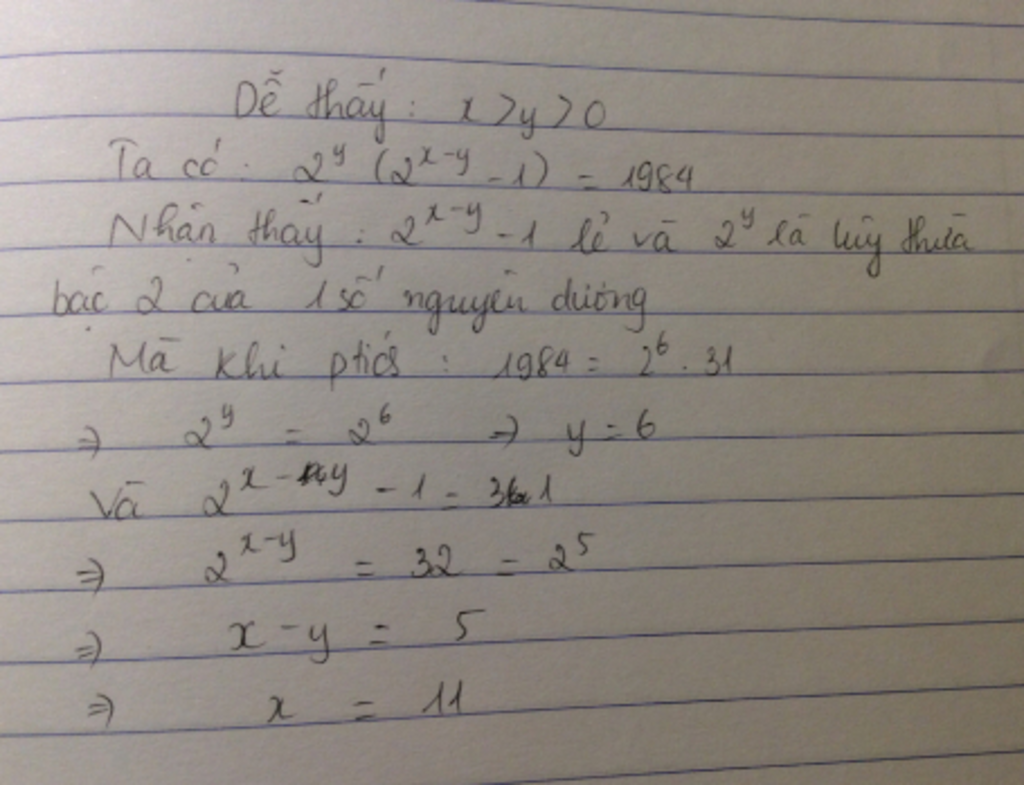 Dễ thấy : x > y > 0
Ta có : 2^y (2^{x-y} - 1) = 1984
Nhận thấy : 2^{x-y} - 1 lẻ và 2^y là lũy thừa
bậc 2 của 1 số nguyên dương
Mà khi ptícs : 1984 = 2^6 . 31
⇒ 2^y = 2^6 ⇒ y = 6
Và 2^{x-y} - 1 = 31
⇒ 2^{x-y} = 32 = 2^5
⇒ x - y = 5
⇒ x = 11